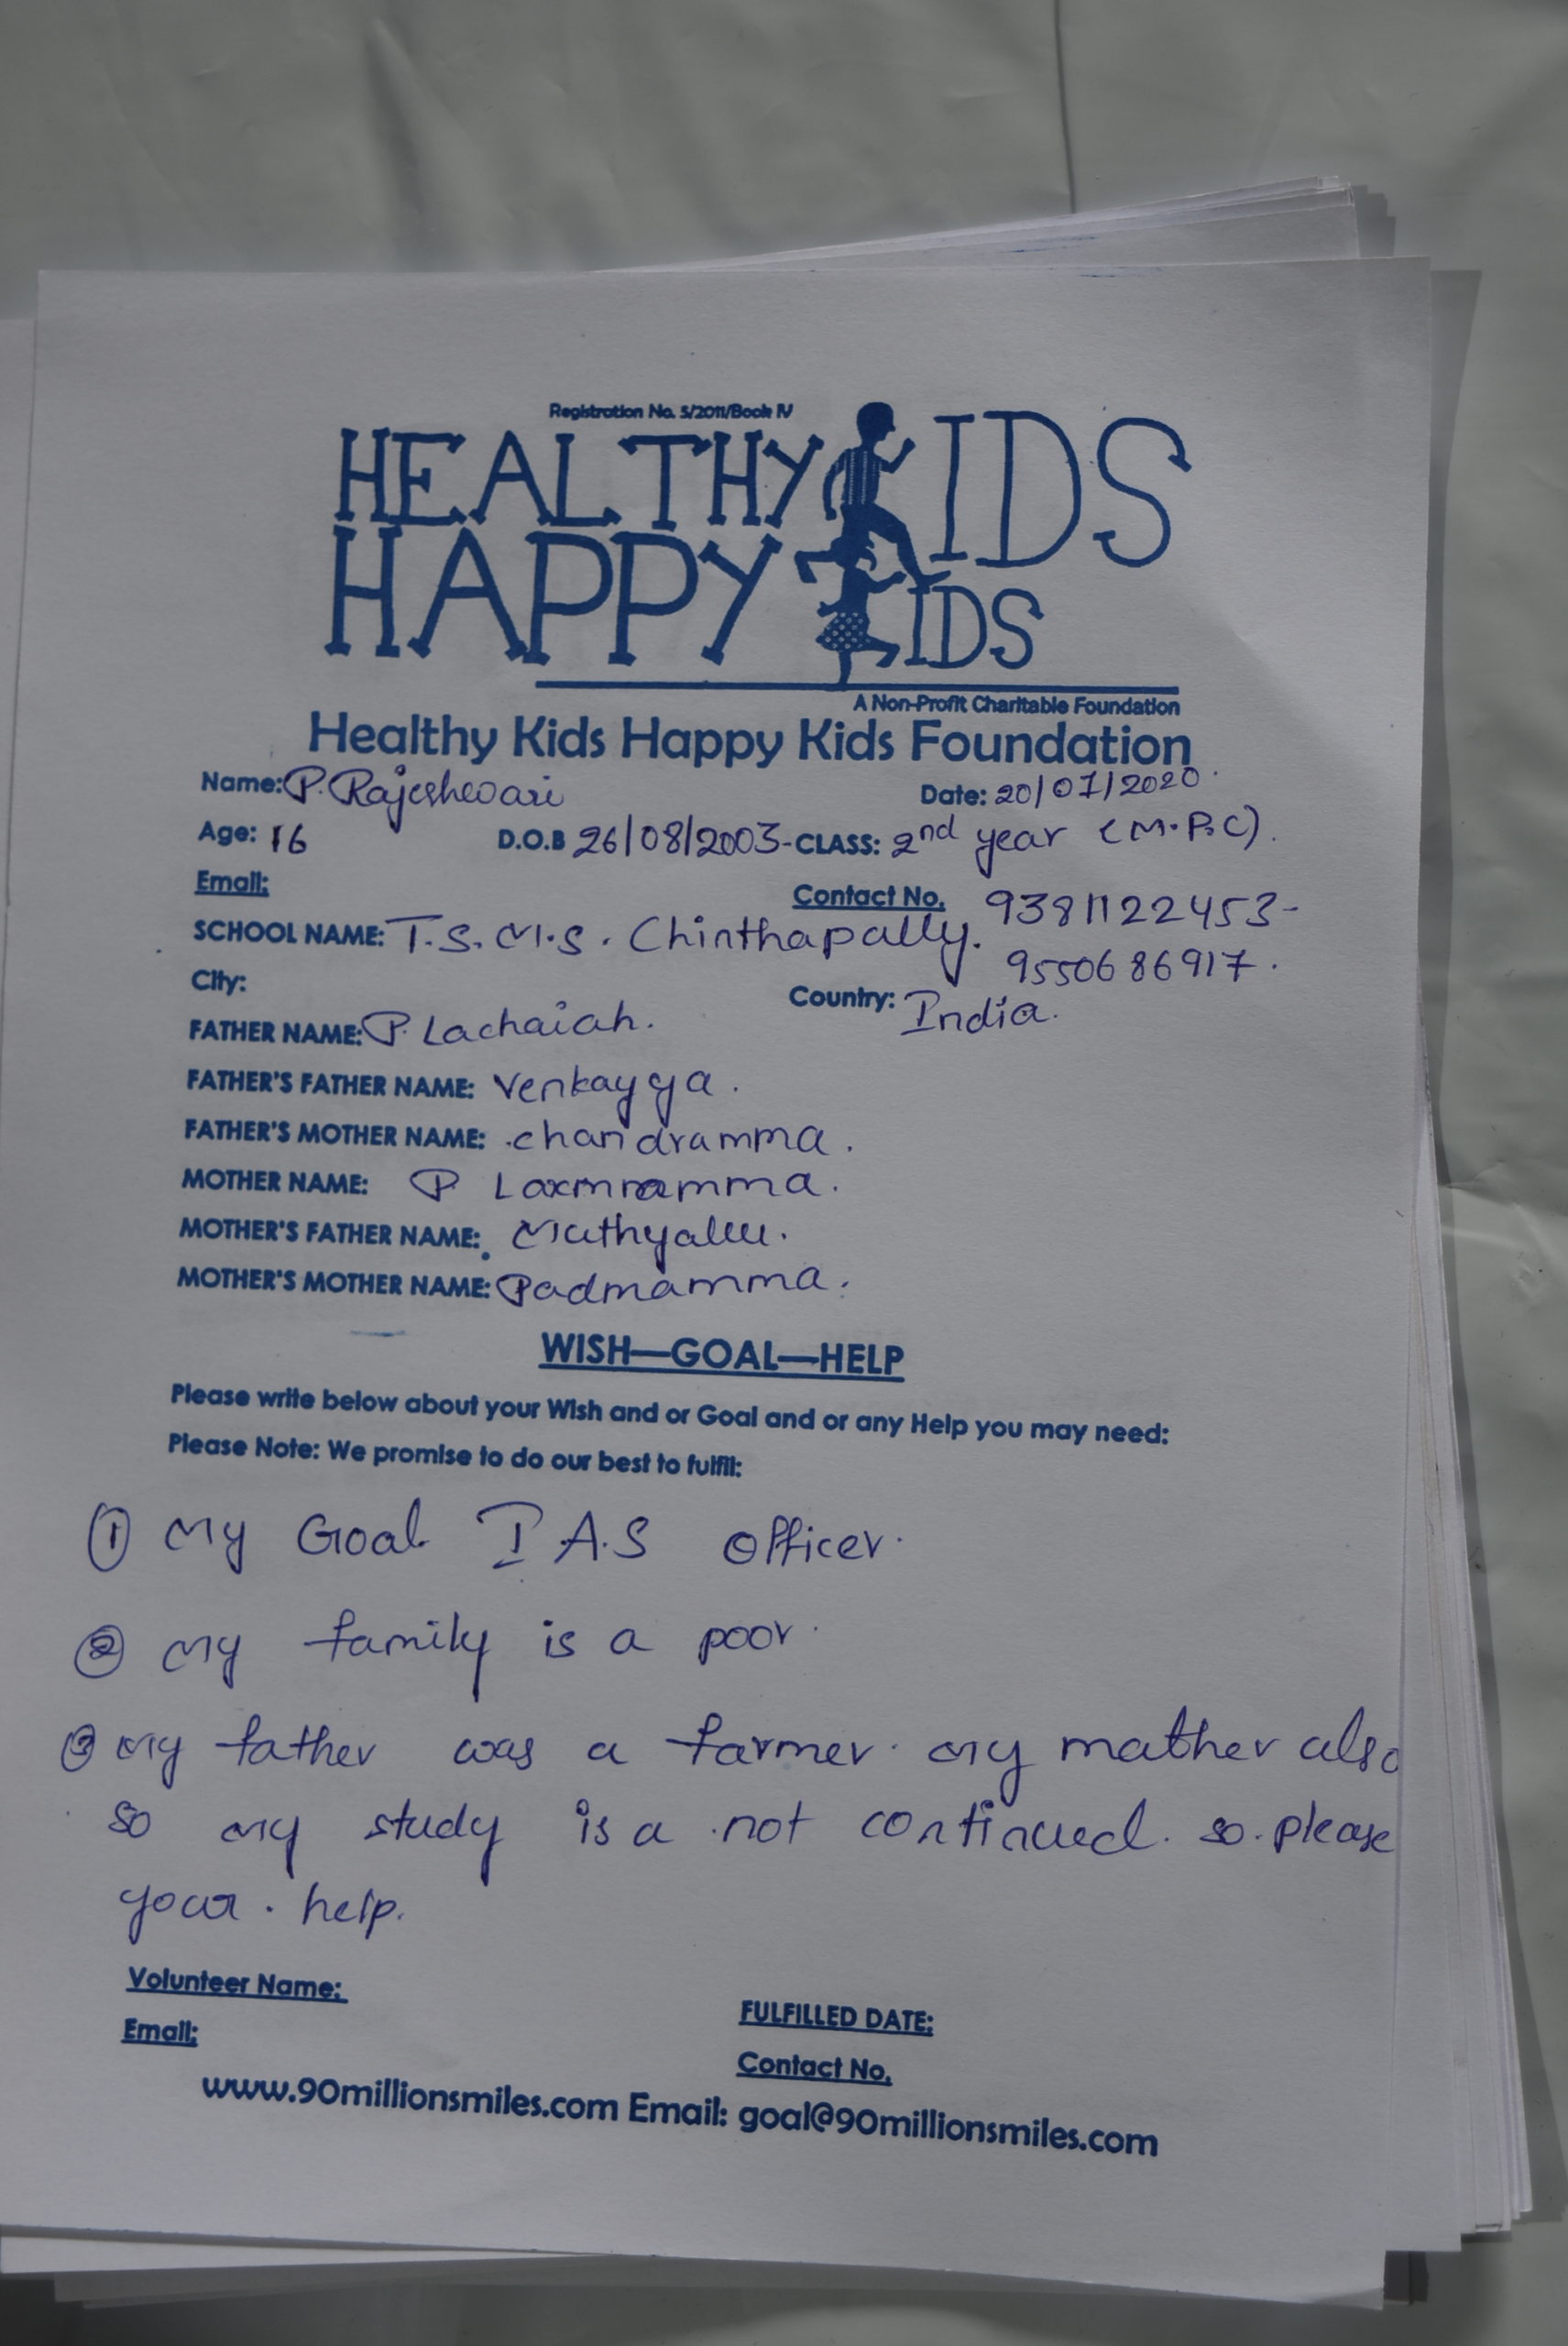 Registration No. 5/2011/Book IV
HEALTHY KIDS
HAPPY KIDS
A Non-Profit Charitable Foundation
Healthy Kids Happy Kids Foundation
Name: P. Rajeshwari Date: 20/01/2020
Age: 16 D.O.B 26/08/2003- CLASS: 2nd year (M.P.C).
Email: Contact No. 9381122453-
SCHOOL NAME: T.S.M.S. Chinthapally. 9550686917.
City: Country: India.
FATHER NAME: P. Lachaiah.
FATHER'S FATHER NAME: Venkayya.
FATHER'S MOTHER NAME: chandramma.
MOTHER NAME: P Laxmramma.
MOTHER'S FATHER NAME: Muthyalu.
MOTHER'S MOTHER NAME: Padmamma.
WISH—GOAL—HELP
Please write below about your Wish and or Goal and or any Help you may need:
Please Note: We promise to do our best to fulfil:
① My Goal I.A.S officer.
② My family is a poor.
③ my father was a farmer. my mather also
so my study is a not continued. so. please
your. help.
Volunteer Name: FULFILLED DATE:
Email: Contact No.
www.90millionsmiles.com Email: goal@90millionsmiles.com